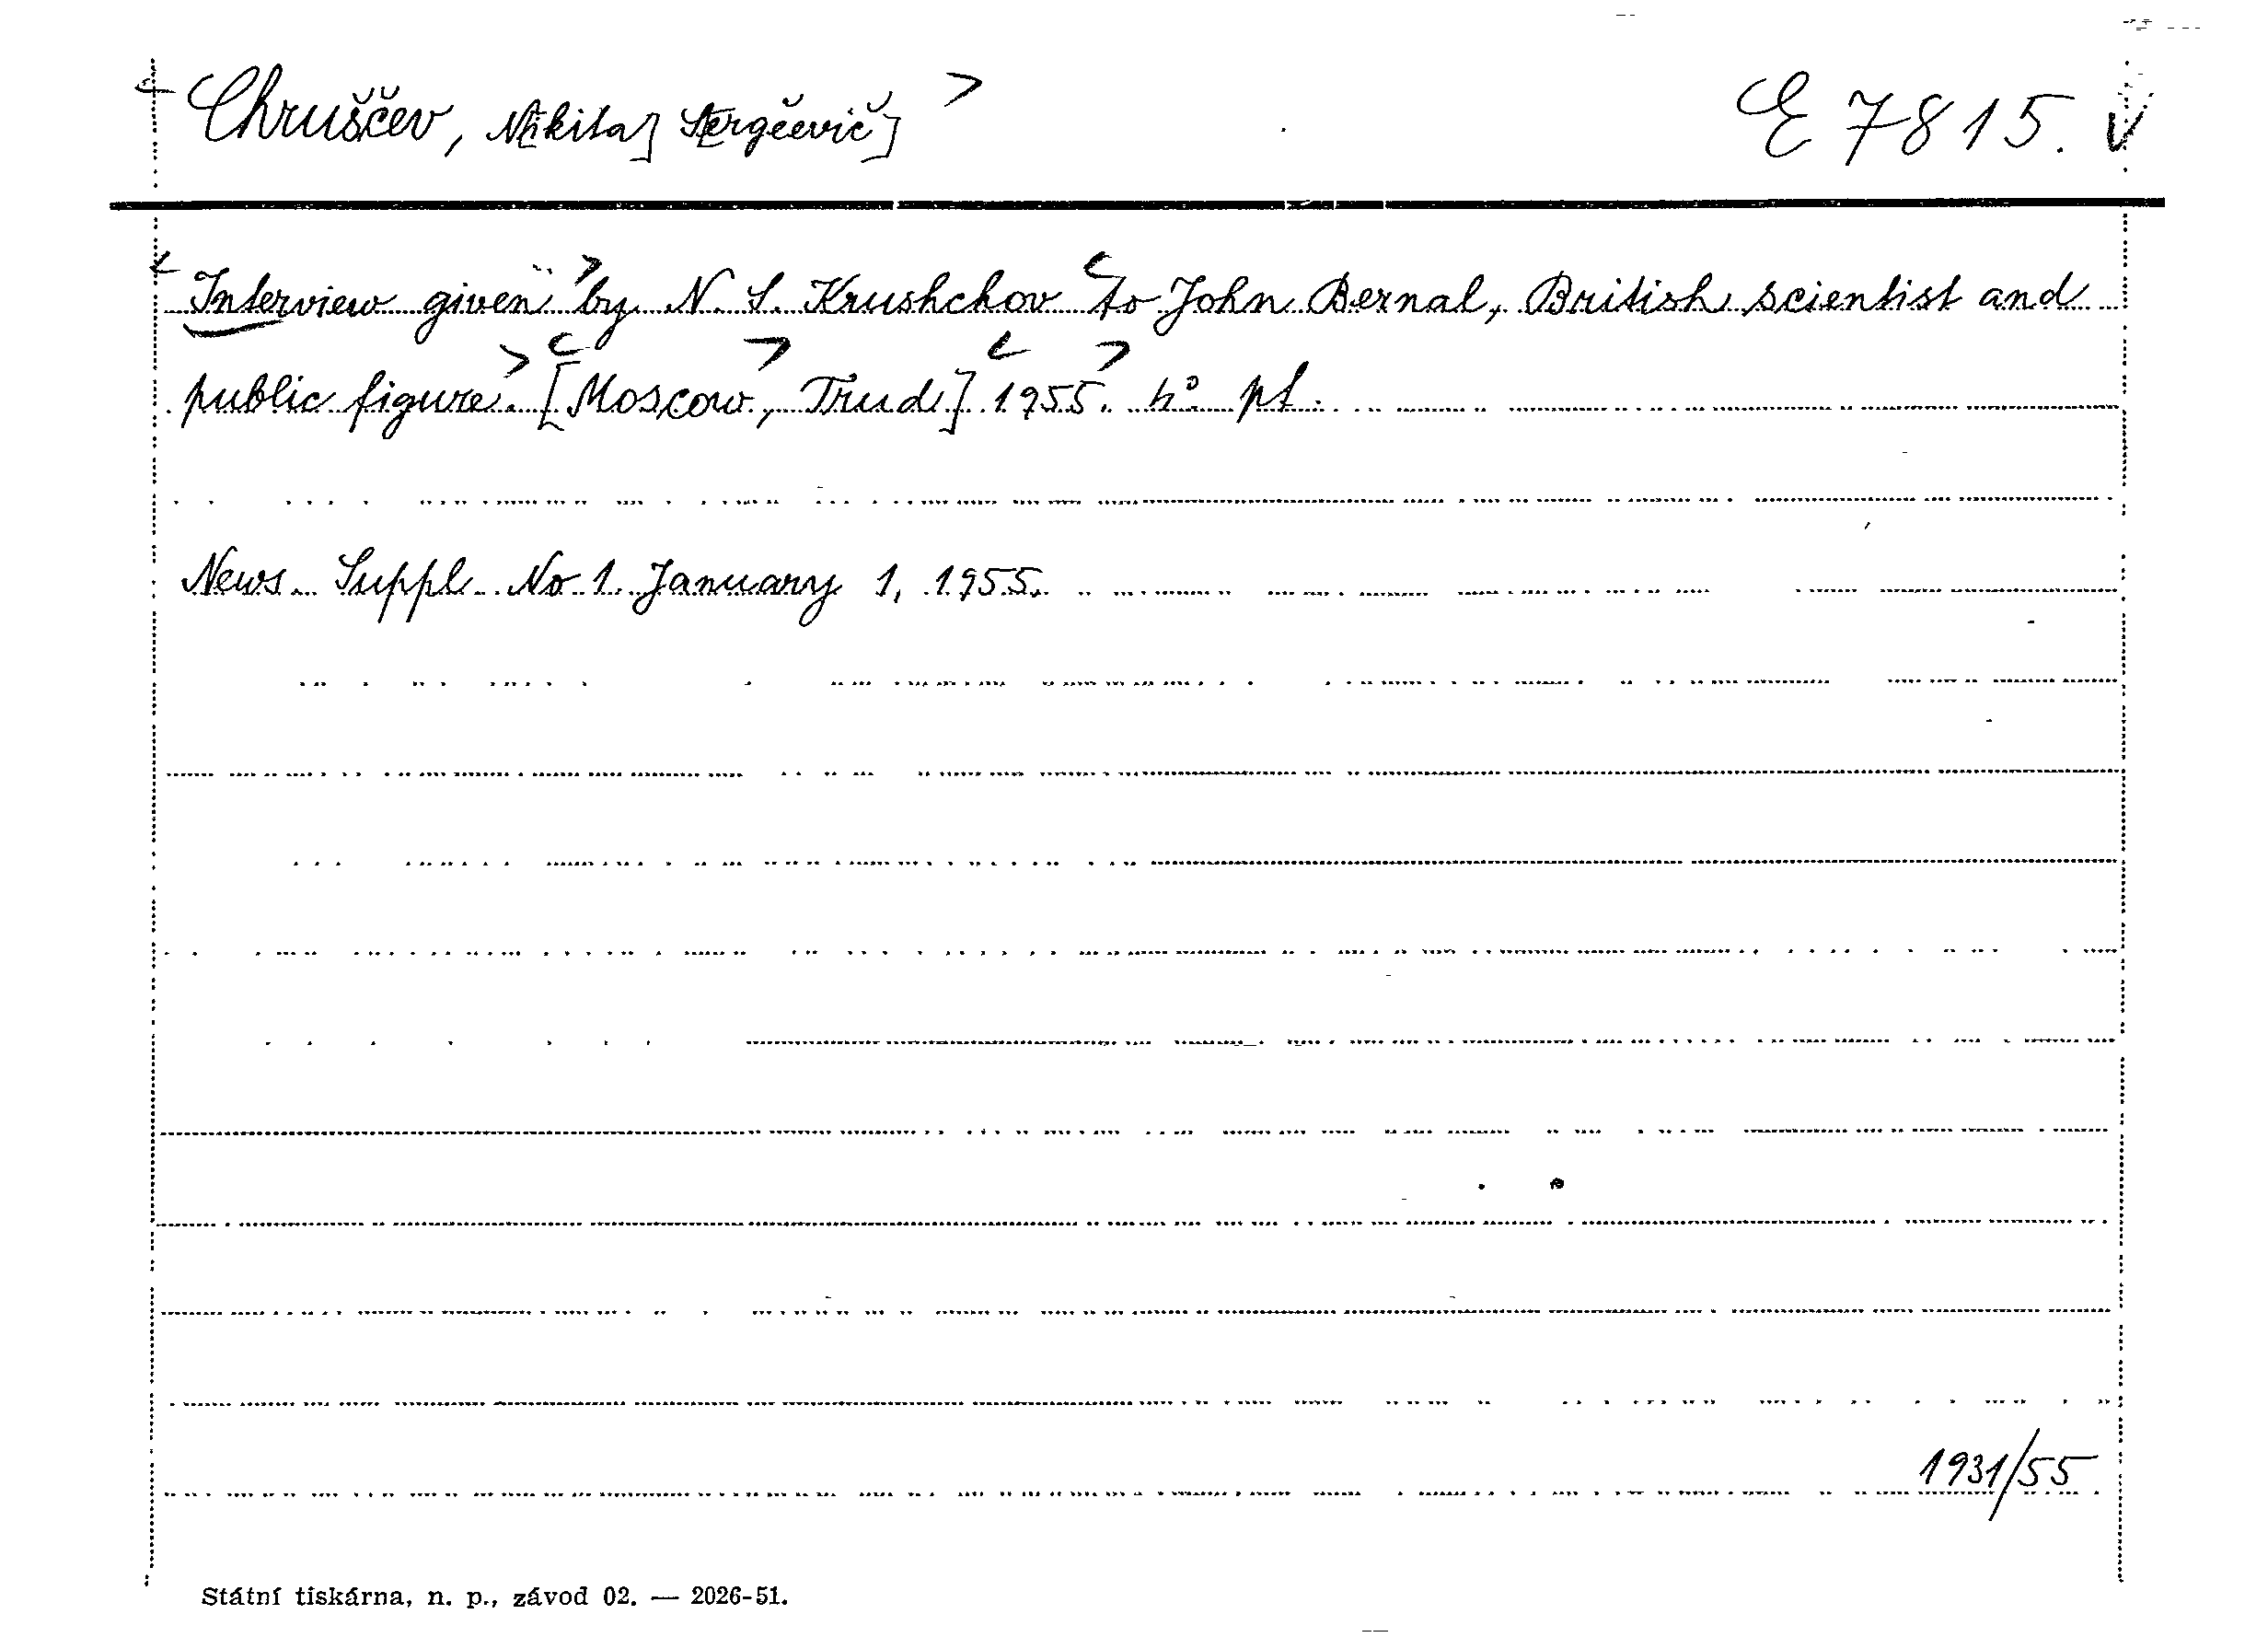 Chruščev, N[ikita] S[ergěevič] E 7815.
Interview given by N. S. Krushchov to John Bernal, British scientist and
public figure. [Moscow, Trud] 1955. 4° pt.
News. Suppl. No 1. January 1, 1955.
1931/55
Státní tiskárna, n. p., závod 02. — 2026-51.